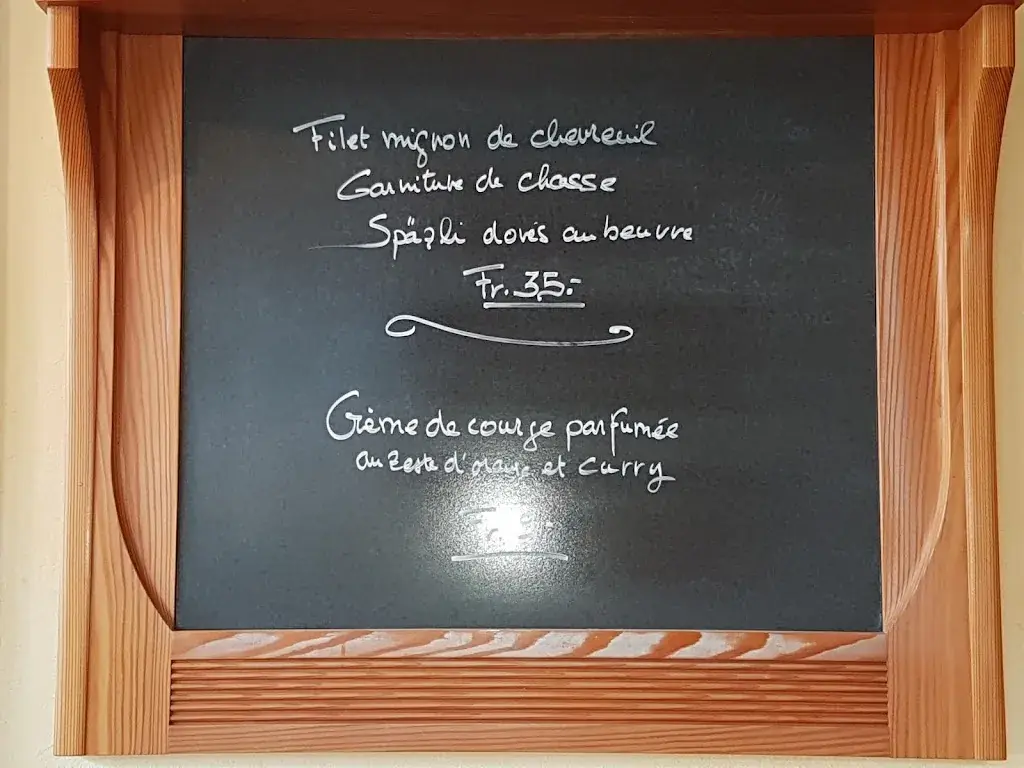 Filet mignon de chevreuil
Garniture de chasse
Späzli dorés au beurre
Fr. 35.-
Crème de courge parfumée
au zeste d'orange et curry